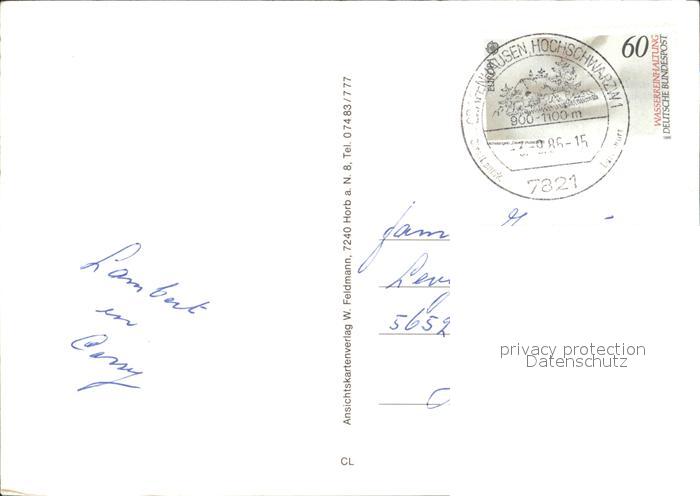 Lambert
en
Ansichtskartenverlag W. Feldmann, 7240 Horb a. N. 8, Tel. 07483/777
CL
EUROPA
60
WASSERREINHALTUNG
DEUTSCHE BUNDESPOST
HOCHSCHWARZW 1
900-1100 m
7821
fam
5652
privacy protection
Datenschutz